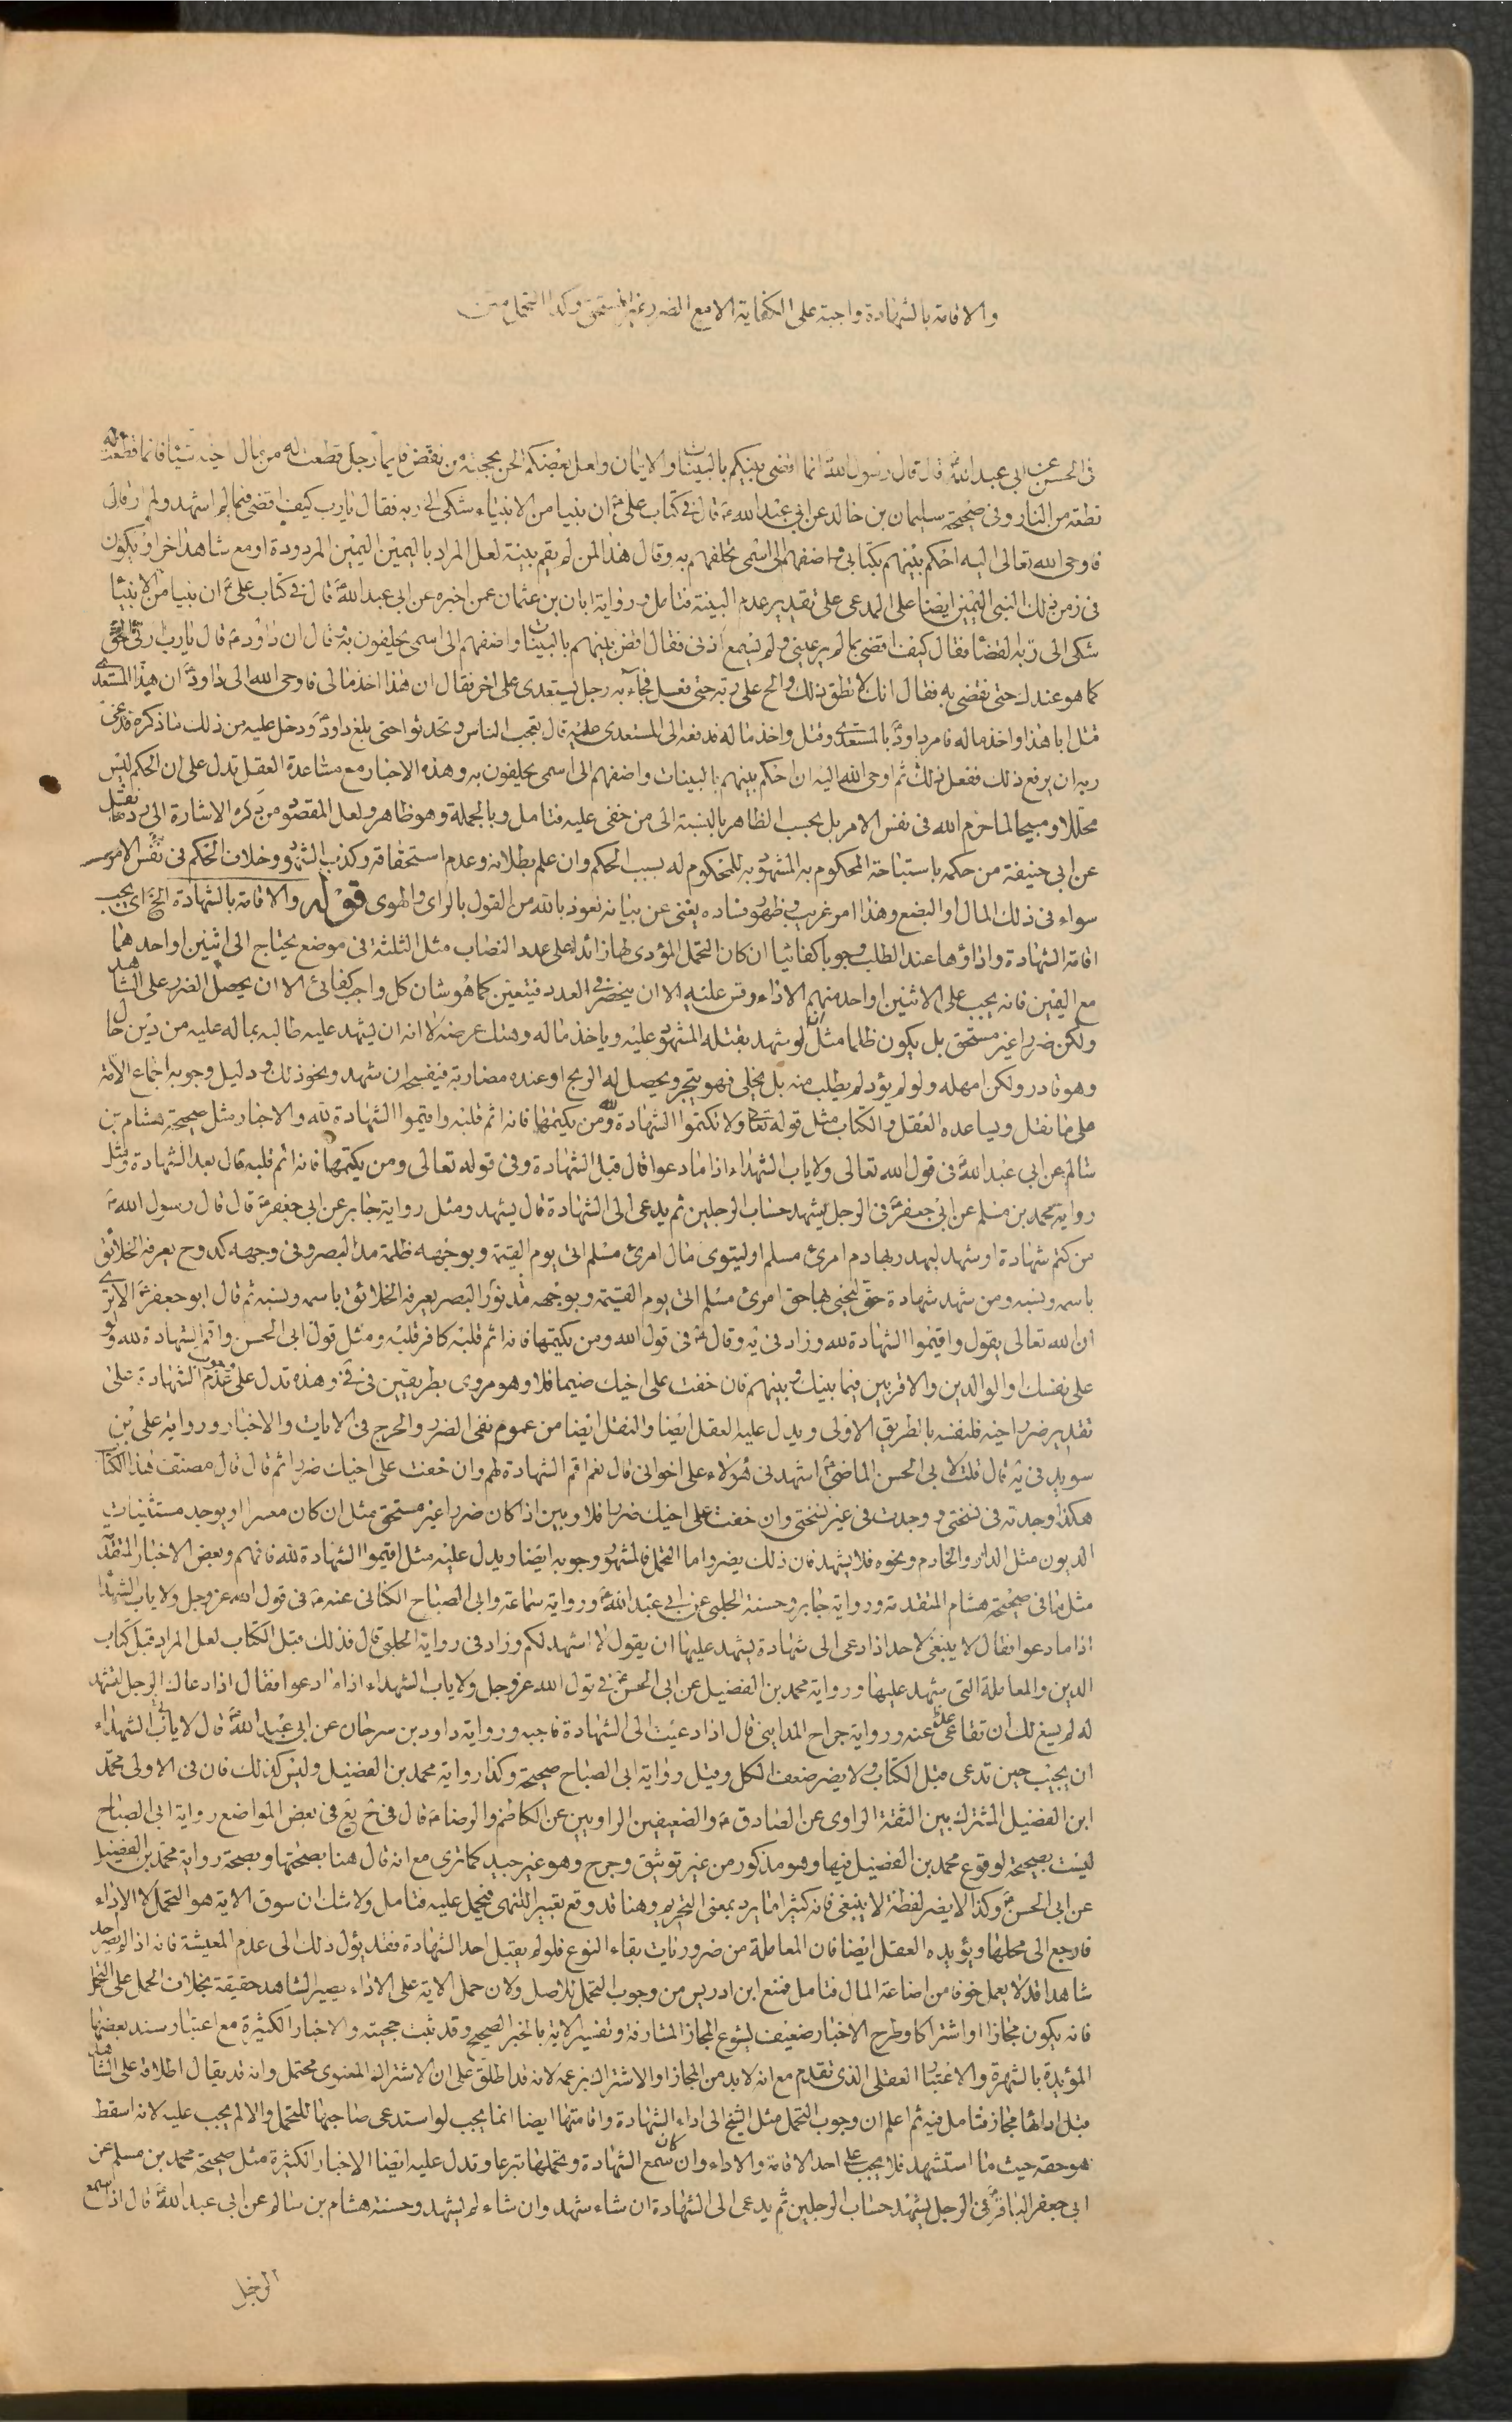 والاقامة بالشهادة واجبة على الكفاية الا مع الضرر غير المستحق وكذا التحمل متن
فى الحسن عن ابى عبد الله ع قال قال رسول الله ص انما اقضى بينكم بالبينات والايمان ولعل بعضكم الحن بحجته من بعض فايما رجل قطعت له من مال اخيه شيئا فانما قطعت له
قطعة من النار وفى صحيحة سليمان بن خالد عن ابى عبد الله ع قال فى كتاب على ع ان نبيا من الانبياء شكى الى ربه فقال يا رب كيف اقضى فيما لم اشهد ولم ار قال
فاوحى الله تعالى اليه احكم بينهم بكتابى واضفهم الى اسمى تحلفهم به وقال هذا لمن لم يقم بينة لعل المراد باليمين اليمين المردودة او مع شاهد اخر او يكون
فى زمن ذلك النبى اليمين ايضا على المدعى على تقدير عدم البينة فتامل ورواية ابان بن عثمان عمن اخبره عن ابى عبد الله ع قال فى كتاب على ع ان نبيا من الانبيا
شكى الى ربه القضا فقال كيف اقضى بما لم ير عينى ولم يسمع اذنى فقال اقض بينهم بالبينات واضفهم الى اسمى يحلفون به وقال ان داود ع قال يا رب ارنى الحق
كما هو عندك حتى نقضى به فقال انك لا تطيق ذلك والح على ربه حتى فعل فجاءه رجل يستعدى على اخر فقال ان هذا اخذ مالى فاوحى الله الى داود ع ان هذا المستعدى
قتل ابا هذا واخذ ماله فامر داود ع بالمستعدى وقتل واخذ ماله فدفعه الى المستعدى عليه قال فعجب الناس وتحدثوا حتى بلغ داود ع ودخل عليه من ذلك ما ذكره فدعى
ربه ان يرفع ذلك ففعل ذلك ثم اوحى الله اليه ان احكم بينهم بالبينات واضفهم الى اسمى يحلفون به وهذه الاخبار مع مساعدة العقل تدل على ان الحكم ليس
محللا ومبيحا لما حرم الله فى نفس الامر بل بحسب الظاهر بالنسبة الى من خفى عليه فتامل وبالجملة وهو ظاهر ولعل المقصود من ذكره الاشارة الى رد ما نقل
عن ابى حنيفة من حكمه باستباحة المحكوم به المشهود به للمحكوم له بسبب الحكم وان علم بطلانه وعدم استحقاقه وكذب الشهود وخلاف الحكم فى نفس الامر
سواء فى ذلك المال او البضع وهذا امر غريب وظهور فساده يغنى عن بيانه نعوذ بالله من القول بالراى والهوى قوله والاقامة بالشهادة الخ اى يجب
اقامة الشهادة واداؤها عند الطلب وجوبا كفائيا ان كان التحمل المؤدى لها زائدا على عدد النصاب مثل الثلثة فى موضع يحتاج الى اثنين او احدهما
مع اليمين فانه يجب على الاثنين او احد منهم الاداء وقس عليه الا ان ينحصر فى العدد فيتعين كما هو شان كل واجب كفائى الا ان يحصل الضرر على الشاهد
ولكن ضررا غير مستحق بل يكون ظلما مثل ان لو شهد يقتله المشهود عليه وياخذ ماله وهتك عرضه لا انه ان يشهد عليه طالبه بما له عليه من دين حال
وهو قادر ولكن امهله ولو لم يؤد لم يطلب منه بل يخلى فهو يتجر ويحصل له الربح او عنده مضاربة فيفسخ ان شهد ونحو ذلك ودليل وجوبه اجماع الامة
على ما نقل ويساعده العقل والكتاب مثل قوله تعالى ولا تكتموا الشهادة ومن يكتمها فانه اثم قلبه واقيموا الشهادة لله والاخبار مثل صحيحة هشام بن
سالم عن ابى عبد الله ع فى قول الله تعالى ولا ياب الشهداء اذا ما دعوا قال قبل الشهادة وفى قوله تعالى ومن يكتمها فانه اثم قلبه قال بعد الشهادة ومثل
رواية محمد بن مسلم عن ابى جعفر ع فى الرجل يشهد حساب الرجلين ثم يدعى الى الشهادة قال يشهد ومثل رواية جابر عن ابى جعفر ع قال قال رسول الله ص
من كتم شهادة او شهد ليهدر بها دم امرئ مسلم او ليتوى مال امرئ مسلم اتى يوم القيمة وبوجهه ظلمة مد البصر وفى وجهه كدوح يعرفه الخلائق
باسمه ونسبه ومن شهد شهادة حق ليحيى بها حق امرئ مسلم اتى يوم القيمة وبوجهه مد نور البصر يعرفه الخلائق باسمه ونسبه ثم قال ابو جعفر ع الا ترى
ان الله تعالى يقول واقيموا الشهادة لله وزاد فى يه وقال ع فى قول الله ومن يكتمها فانه اثم قلبه كافر قلبه ومثل قول ابى الحسن واقم الشهادة لله ولو
على نفسك او الوالدين والاقربين فيما بينك وبينهم فان خفت على اخيك ضيما فلا وهو مروى بطريقين فى فى وهذه تدل على عدم وجوب الشهادة على
تقدير ضرر اخيه فلنفسه بالطريق الاولى ويدل عليه العقل ايضا والنقل ايضا من عموم نفى الضرر والحرج فى الايات والاخبار ورواية على بن
سويد فى يه قال قلت لابى الحسن الماضى ع اشهدنى هؤلاء على اخوانى قال نعم اقم الشهادة لهم وان خفت على اخيك ضررا ثم قال قال مصنف هذا الكتاب
هكذا وجدته فى نسختى ووجدت فى غير نسختى وان خفت على اخيك ضررا فلا وبين اذا كان ضررا غير مستحق مثل ان كان معسرا ويوجد مستثنيات
الديون مثل الدار والخادم ونحوه فلا يشهد فان ذلك يضر واما التحمل فالمشهور وجوبه ايضا ويدل عليه مثل اقيموا الشهادة لله فافهم وبعض الاخبار المتقدمة
مثل ما فى صحيحة هشام المتقدمة ورواية جابر وحسنة الحلبى عن ابى عبد الله ع ورواية سماعة وابى الصباح الكنانى عنه ع فى قول الله عز وجل ولا ياب الشهداء
اذا ما دعوا فقال لا ينبغى لاحد اذا دعى الى شهادة ليشهد عليها ان يقول لا اشهد لكم وزاد فى رواية الحلبى قال فذلك قبل الكتاب لعل المراد قبل كتاب
الدين والمعاملة التى يشهد عليها ورواية محمد بن الفضيل عن ابى الحسن ع فى قول الله عز وجل ولا ياب الشهداء اذا ما دعوا فقال اذا دعاك الرجل لتشهد
له لم يسغ لك ان تقاعس عنه ورواية جراح المداينى قال اذا دعيت الى الشهادة فاجب ورواية داود بن سرحان عن ابى عبد الله ع قال لا ياب الشهداء
ان يجيب حين تدعى قبل الكتاب ولا يضر ضعف الكل وقيل رواية ابى الصباح صحيحة وكذا رواية محمد بن الفضيل وليس كذلك فان فى الاولى محمد
ابن الفضيل المشترك بين الثقة الراوى عن الصادق ع والضعيفين الراويين عن الكاظم والرضا ع قال فى شرح يع فى بعض المواضع رواية ابى الصباح
ليست بصحيحة لوقوع محمد بن الفضيل فيها وهو مذكور من غير توثيق وجرح وهو غير جيد كما ترى مع انه قال هنا بصحتها وبصحة رواية محمد بن الفضيل
عن ابى الحسن ع وكذا لا يضر لفظة لا ينبغى فانه كثيرا ما يرد بمعنى التحريم وهنا قد وقع تعبير النهى فيحمل عليه فتامل ولا شك ان سوق الاية هو التحمل لا الاداء
فارجع الى محلها ويؤيده العقل ايضا فان المعاملة من ضروريات بقاء النوع فلو لم يقبل احد الشهادة فقد يؤل ذلك الى عدم المعيشة فانه اذا لم يصر احد
شاهدا قد لا يعمل خوفا من اضاعة المال فتامل فمنع ابن ادريس من وجوب التحمل للاصل ولان حمل الاية على الاداء يصير الشاهد حقيقة بخلاف الحمل على التحمل
فانه يكون مجازا او اشتراكا وطرح الاخبار ضعيف لشيوع المجاز المشارفة وتفسير الاية بالخبر الصحيح وقد ثبت حجيته والاخبار الكثيرة مع اعتبار سند بعضها
المؤيدة بالشهرة والاعتبار العقلى الذى تقدم مع انه لا بد من المجاز او الاشتراك بزعمه لانه قد اطلق على ان الاشتراك المعنوى محتمل وانه قد يقال اطلاقه على الشاهد
قبل ادائها مجاز فتامل فيه ثم اعلم ان وجوب التحمل مثل الشيخ الى اداء الشهادة واقامتها ايضا انما يجب لو استدعى صاحبها للتحمل والا لم يجب عليه لانه اسقط
هو حقه حيث ما استشهد فلا يجب على احد الاقامة والاداء وان كان سمع الشهادة وتحملها تبرعا وتدل عليه ايضا الاخبار الكثيرة مثل صحيحة محمد بن مسلم عن
ابى جعفر الباقر ع فى الرجل يشهد حساب الرجلين ثم يدعى الى الشهادة ان شاء شهد وان شاء لم يشهد وحسنة هشام بن سالم عن ابى عبد الله ع قال اذا سمع
الرجل